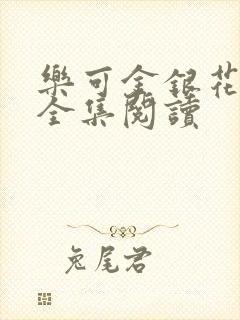 樂可金銀花
全集閱讀
兔尾君